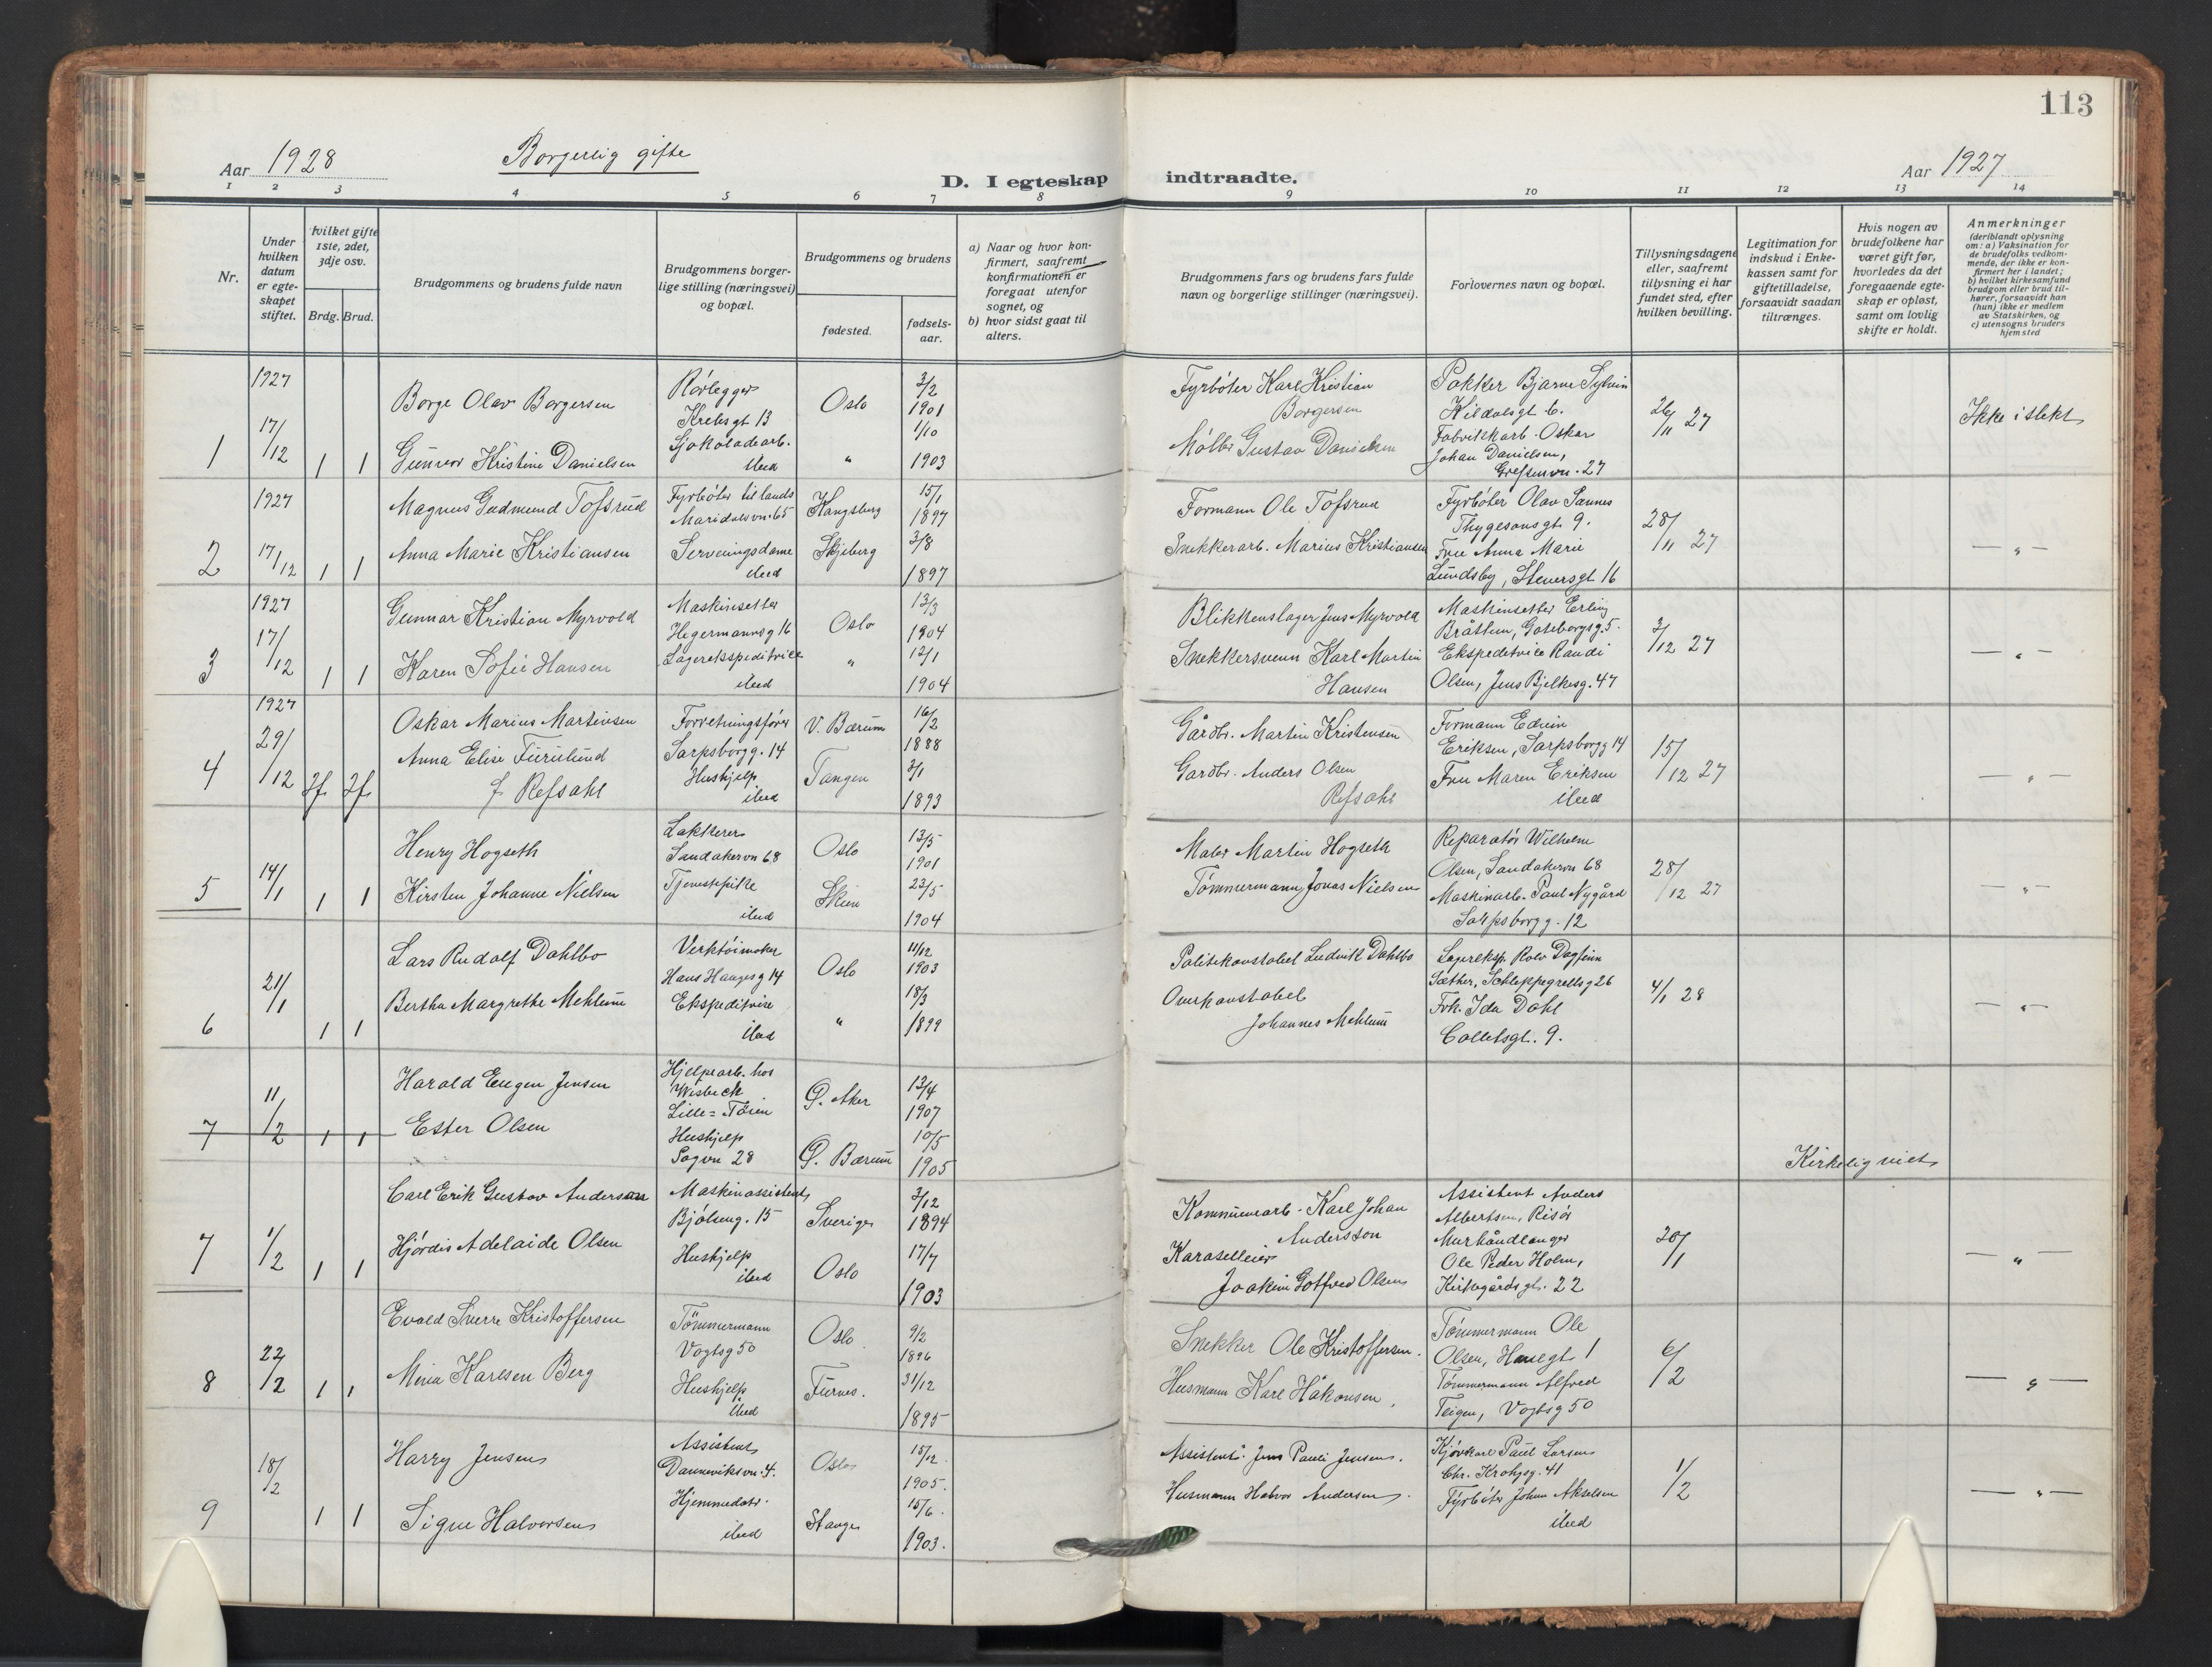 113
Aar 1928
Borgerlig gifte
D. I egteskap indtraadte.
Aar 1927
1 2 3 4 5 6 7 8 9 10 11 12 13 14
Nr.
Under hvilken datum er egte-skapet stiftet.
hvilket gifte 1ste, 2det, 3dje osv.
Brdg. Brud.
Brudgommens og brudens fulde navn
Brudgommens borger-lige stilling (næringsvei) og bopæl.
Brudgommens og brudens
fødested.
fødsels-aar.
a) Naar og hvor kon-firmert, saafremt konfirmationen er foregaat utenfor sognet, og
b) hvor sidst gaat til alters.
Brudgommens fars og brudens fars fulde navn og borgerlige stillinger (næringsvei).
Forlovernes navn og bopæl.
Tillysningsdagene eller, saafremt tillysning ei har fundet sted, efter hvilken bevilling.
Legitimation for indskud i Enke-kassen samt for giftetilladelse, forsaavidt saadan tiltrænges.
Hvis nogen av brudefolkene har været gift før, hvorledes da det foregaaende egte-skap er opløst, samt om lovlig skifte er holdt.
Anmerkninger
(deriblandt oplysning om: a) Vaksination for de brudefolks vedkom-mende, der ikke er kon-firmert her i landet; b) hvilket kirkesamfund brudgom eller brud til-hører, forsaavidt han (hun) ikke er medlem av Statskirken, og c) utensogns bruders hjemsted
1
1927
17/12
1 1
Borge Olav Borgersen
Gunvor Kristine Danielsen
Rörlegger
Krebsgt 13
Sjokoladearb.
ibid
Oslo
"
3/2
1901
1/10
1903
Fyrböter Karl Kristian
Borgersen
Möller Gustav Danielsen
Pakker Bjarne
Kildalsgt 6.
Fabrikkarb. Oskar
Johan Danielsen,
Grefsenvn. 27
26/11 27
Ikke i slekt
2
1927
17/12
1 1
Magnus Gudmund Tofsrud
Anna Marie Kristiansen
Fyrböter til lands
Maridalsvn. 65
Serveringsdame
ibid
Kongsberg
Skjeberg
15/1
1897
3/8
1897
Formann Ole Tofsrud
Snekkerarb. Marius Kristiansen
Fyrböter Olav Sannes
Thygesonsgt 9.
Fru Anna Marie
Lundsby, Steversgt 16
28/11 27
— " —
3
1927
17/12
1 1
Gunnar Kristian Myrvold
Karen Sofie Hansen
Maskinsetter
Hegermannsg 16
Lagerekspeditrice
ibid
Oslo
"
13/3
1904
12/1
1904
Blikkenslager Jens Myrvold
Snekkersvenn Karl Martin
Hansen
Maskinsetter Erling
Bråthen, Göteborgg. 5.
Ekspeditrice Randi
Olsen, Jens Bjelkesg. 47
3/12 27
— " —
4
1927
29/12
Oskar Marius Martinsen
Anna Elise Furulund
f. Refsahl
Forretningsförer
Sarpsborgg. 14
Hushjelp
ibid
V. Bærum
Tangen
16/2
1888
3/1
1893
Gårdbr. Martin Kristensen
Gardbr. Anders Olsen
Refsahl
Formann Edvin
Eriksen, Sarpsborgg 14
Fru Maren Eriksen
ibid
15/12 27
— " —
5
14/1
1 1
Henry Hogseth
Kirsten Johanne Nielsen
Lakkerer
Sandakervn 68
Tjenestepike
ibid
Oslo
Skien
13/5
1901
23/5
1904
Maler Martin Hogseth
Tömmermann Jonas Nielsen
Reparatör Wilhelm
Olsen, Sandakervn 68
Maskinarb. Paul Nygård
Sarpsborgg. 12
28/12 27
— " —
6
21/1
1 1
Lars Rudolf Dahlbo
Bertha Margrethe Mehlum
Verktöimaker
Hans Haugesg 14
Ekspeditrise
ibid
Oslo
"
11/12
1903
18/3
1899
Politikonstabel Ludvik Dahlbo
Overkonstabel
Johannes Mehlum
Lagereksp. Rolv Dagfinn
Sæther, Schleppegrellsg 26
Frk. Ida Dahl
Colletsgt. 9.
4/1 28
— " —
7
11/2
1 1
Harald Eugen Jensen
Ester Olsen
Hjelpearb. hos
Wisbeck
Lille-Töien
Hushjelp
Sagvn 28
Ö. Aker
Ö. Bærum
13/4
1907
10/5
1905
Kirkelig viet
7
1/2
1 1
Carl Erik Gustav Andersson
Hjördis Adelaide Olsen
Maskinassistent
Bjölseng. 15
Hushjelp
ibid
Sverige
Oslo
3/12
1894
17/7
1903
Kommunearb. Karl Johan
Andersson
Karaselleier
Joakim Gotfred Olsen
Assistent Anders
Albertsen, Risör
Murhåndlanger
Ole Peder Holm,
Kirkegårdsgt. 22
20/1
— " —
8
22/2
1 1
Evald Sverre Kristoffersen
Mina Karlsen Berg
Tömmermann
Vogtsg 50
Hushjelp
ibid
Oslo
Furnes.
9/2
1896
31/12
1895
Snekker Ole Kristoffersen.
Husmann Karl Håkonsen,
Tömmermann Ole
Olsen, 1
Tömmermann Alfred
Teigen, Vogtsg 50
6/2
— " —
9
18/2
1 1
Harry Jensen
Signe Halvorsen
Assistent
Danneviksvn. 4.
Hjemmedatr.
ibid
Oslo
Stange
15/12
1905.
15/6.
1903.
Assistent Jens Pauli Jensen.
Husmann Halvor Andersen.
Kjörekarl Paul Larsen
Chr. Krohgsg. 41
Fyrböter Johan Akselsen
ibid
1/2
— " —